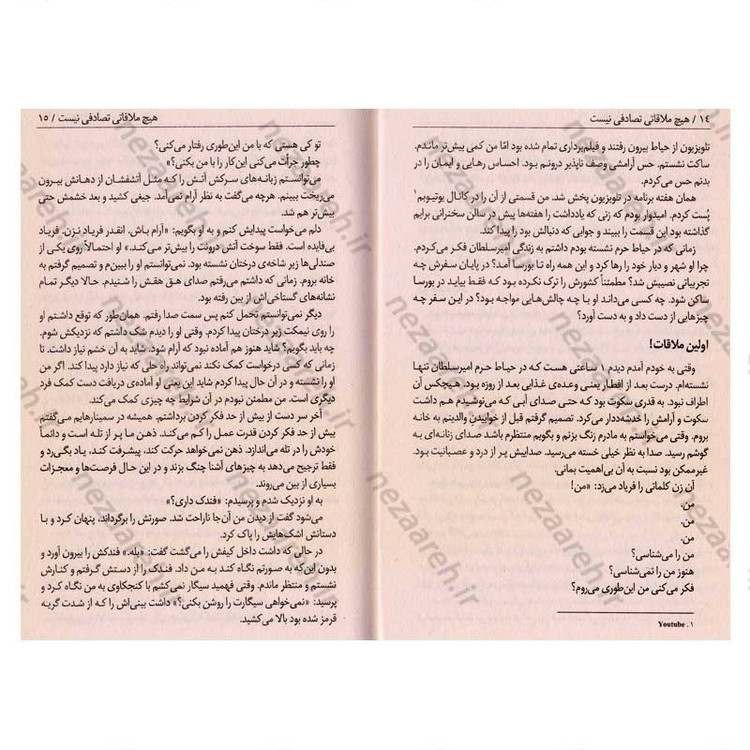 ۱٤ / هیچ ملاقاتی تصادفی نیست
تلویزیون از حیاط بیرون رفتند و فیلم‌برداری تمام شده بود امّا من کمی بیش‌تر ماندم.
ساکت نشستم. حس آرامشی وصف ناپذیر درونم بود. احساس رهایی و ایمان را در
بدنم حس می‌کردم.
همان هفته برنامه در تلویزیون پخش شد. من قسمتی از آن را در کانال یوتیوبم۱
پُست کردم. امیدوار بودم که زنی که یادداشت را هفته‌ها پیش در سالن سخنرانی برایم
گذاشته بود این قسمت را ببیند و جوابی که دنبالش بود را پیدا کند.
زمانی که در حیاط حرم نشسته بودم داشتم به زندگی امیرسلطان فکر می‌کردم.
چرا او شهر و دیار خود را رها کرد و این همه راه تا بورسا آمد؟ در پایان سفرش چه
تجربیاتی نصیبش شد؟ مطمئناً کشورش را ترک نکرده بود که فقط بیاید در بورسا
ساکن شود. چه کسی می‌داند او با چه چالش‌هایی مواجه بود؟ در این سفر چه
چیزهایی از دست داد و به دست آورد؟
اولین ملاقات!
وقتی به خودم آمدم دیدم ۱ ساعتی هست که در حیاط حرم امیرسلطان تنها
نشسته‌ام. درست بعد از افطار یعنی وعده‌ی غذایی بعد از روزه بود. هیچکس آن
اطراف نبود. به قدری سکوت بود که حتی صدای آبی که می‌نوشیدم هم داشت
سکوت و آرامش را خدشه‌دار می‌کرد. تصمیم گرفتم قبل از خوابیدن والدینم به خانه
بروم. وقتی می‌خواستم به مادرم زنگ بزنم و بگویم منتظرم باشد صدای زنانه‌ای به
گوشم رسید. صدا به نظر خیلی خسته می‌رسید. صدایش پر از درد و عصبانیت بود.
غیرممکن بود نسبت به آن بی‌اهمیت بمانی.
آن زن کلماتی را فریاد می‌زد: «من!
من.
من.
من.
من را می‌شناسی؟
هنوز من را نمی‌شناسی؟
فکر می‌کنی من این‌طوری می‌روم؟
۱. Youtube
هیچ ملاقاتی تصادفی نیست / ۱٥
تو کی هستی که با من این‌طوری رفتار می‌کنی؟
چطور جرأت می‌کنی این‌کار را با من بکنی؟»
می‌توانستم زبانه‌های سرکش آتش را که مثل آتشفشان از دهانش بیرون
می‌ریخت ببینم. هرچه می‌گفت به نظر آرام نمی‌آمد. جیغی کشید و بعد خشمش حتی
بیش‌تر هم شد.
دلم می‌خواست پیدایش کنم و به او بگویم: «آرام باش. انقدر فریاد نزن. فریاد
بی‌فایده است. فقط سوخت آتش درونت را بیش‌تر می‌کند.» او احتمالاً روی یکی از
صندلی‌ها زیر شاخه‌ی درختان نشسته بود. نمی‌توانستم او را ببینم و تصمیم گرفتم به
خانه بروم. زمانی که داشتم می‌رفتم صدای هق هقش را شنیدم. حالا دیگر تمام
نشانه‌های گستاخی‌اش از بین رفته بود.
دیگر نمی‌توانستم تحمل کنم پس سمت صدا رفتم. همان‌طور که توقع داشتم او
را روی نیمکت زیر درختان پیدا کردم. وقتی او را دیدم شک داشتم که نزدیکش شوم.
چه باید بگویم؟ شاید هنوز هم آماده نبود که آرام شود. شاید به آن خشم نیاز داشت. تا
زمانی که کسی درخواست کمک نکند نمی‌تواند راه حلی که نیاز دارد پیدا کند. اگر من
او را نشسته و در آن حال پیدا کردم شاید این یعنی او آماده‌ی دریافت دست کمک فرد
دیگری است. من مطمئن نبودم در آن شرایط چه چیزی کمک می‌کند.
آخر سر دست از بیش از حد فکر کردن برداشتم. همیشه در سمینارهایم می‌گفتم
بیش از حد فکر کردن قدرت عمل را کم می‌کند. ذهن ما پر از تله است و دائماً
خودش را در تله می‌اندازد. ذهن نمی‌خواهد حرکت کند، پیشرفت کند، یاد بگیرد و
فقط ترجیح می‌دهد به چیزهای آشنا چنگ بزند و در این حال فرصت‌ها و معجزات
بسیاری از بین می‌روند.
به او نزدیک شدم و پرسیدم: «فندک داری؟»
می‌شود گفت از دیدن من آن‌جا ناراحت شد. صورتش را برگرداند، پنهان کرد و با
دستانش اشک‌هایش را پاک کرد.
در حالی که داشت داخل کیفش را می‌گشت گفت: «بله.» فندکش را بیرون آورد و
بدون این‌که به صورتم نگاه کند به من داد. فندک را از دستش گرفتم و کنارش
نشستم و منتظر ماندم. وقتی فهمید سیگار نمی‌کشم با کنجکاوی به من نگاه کرد و
پرسید: «نمی‌خواهی سیگارت را روشن بکنی؟» داشت بینی‌اش را که از شدت گریه
قرمز شده بود بالا می‌کشید.
nezaareh.ir